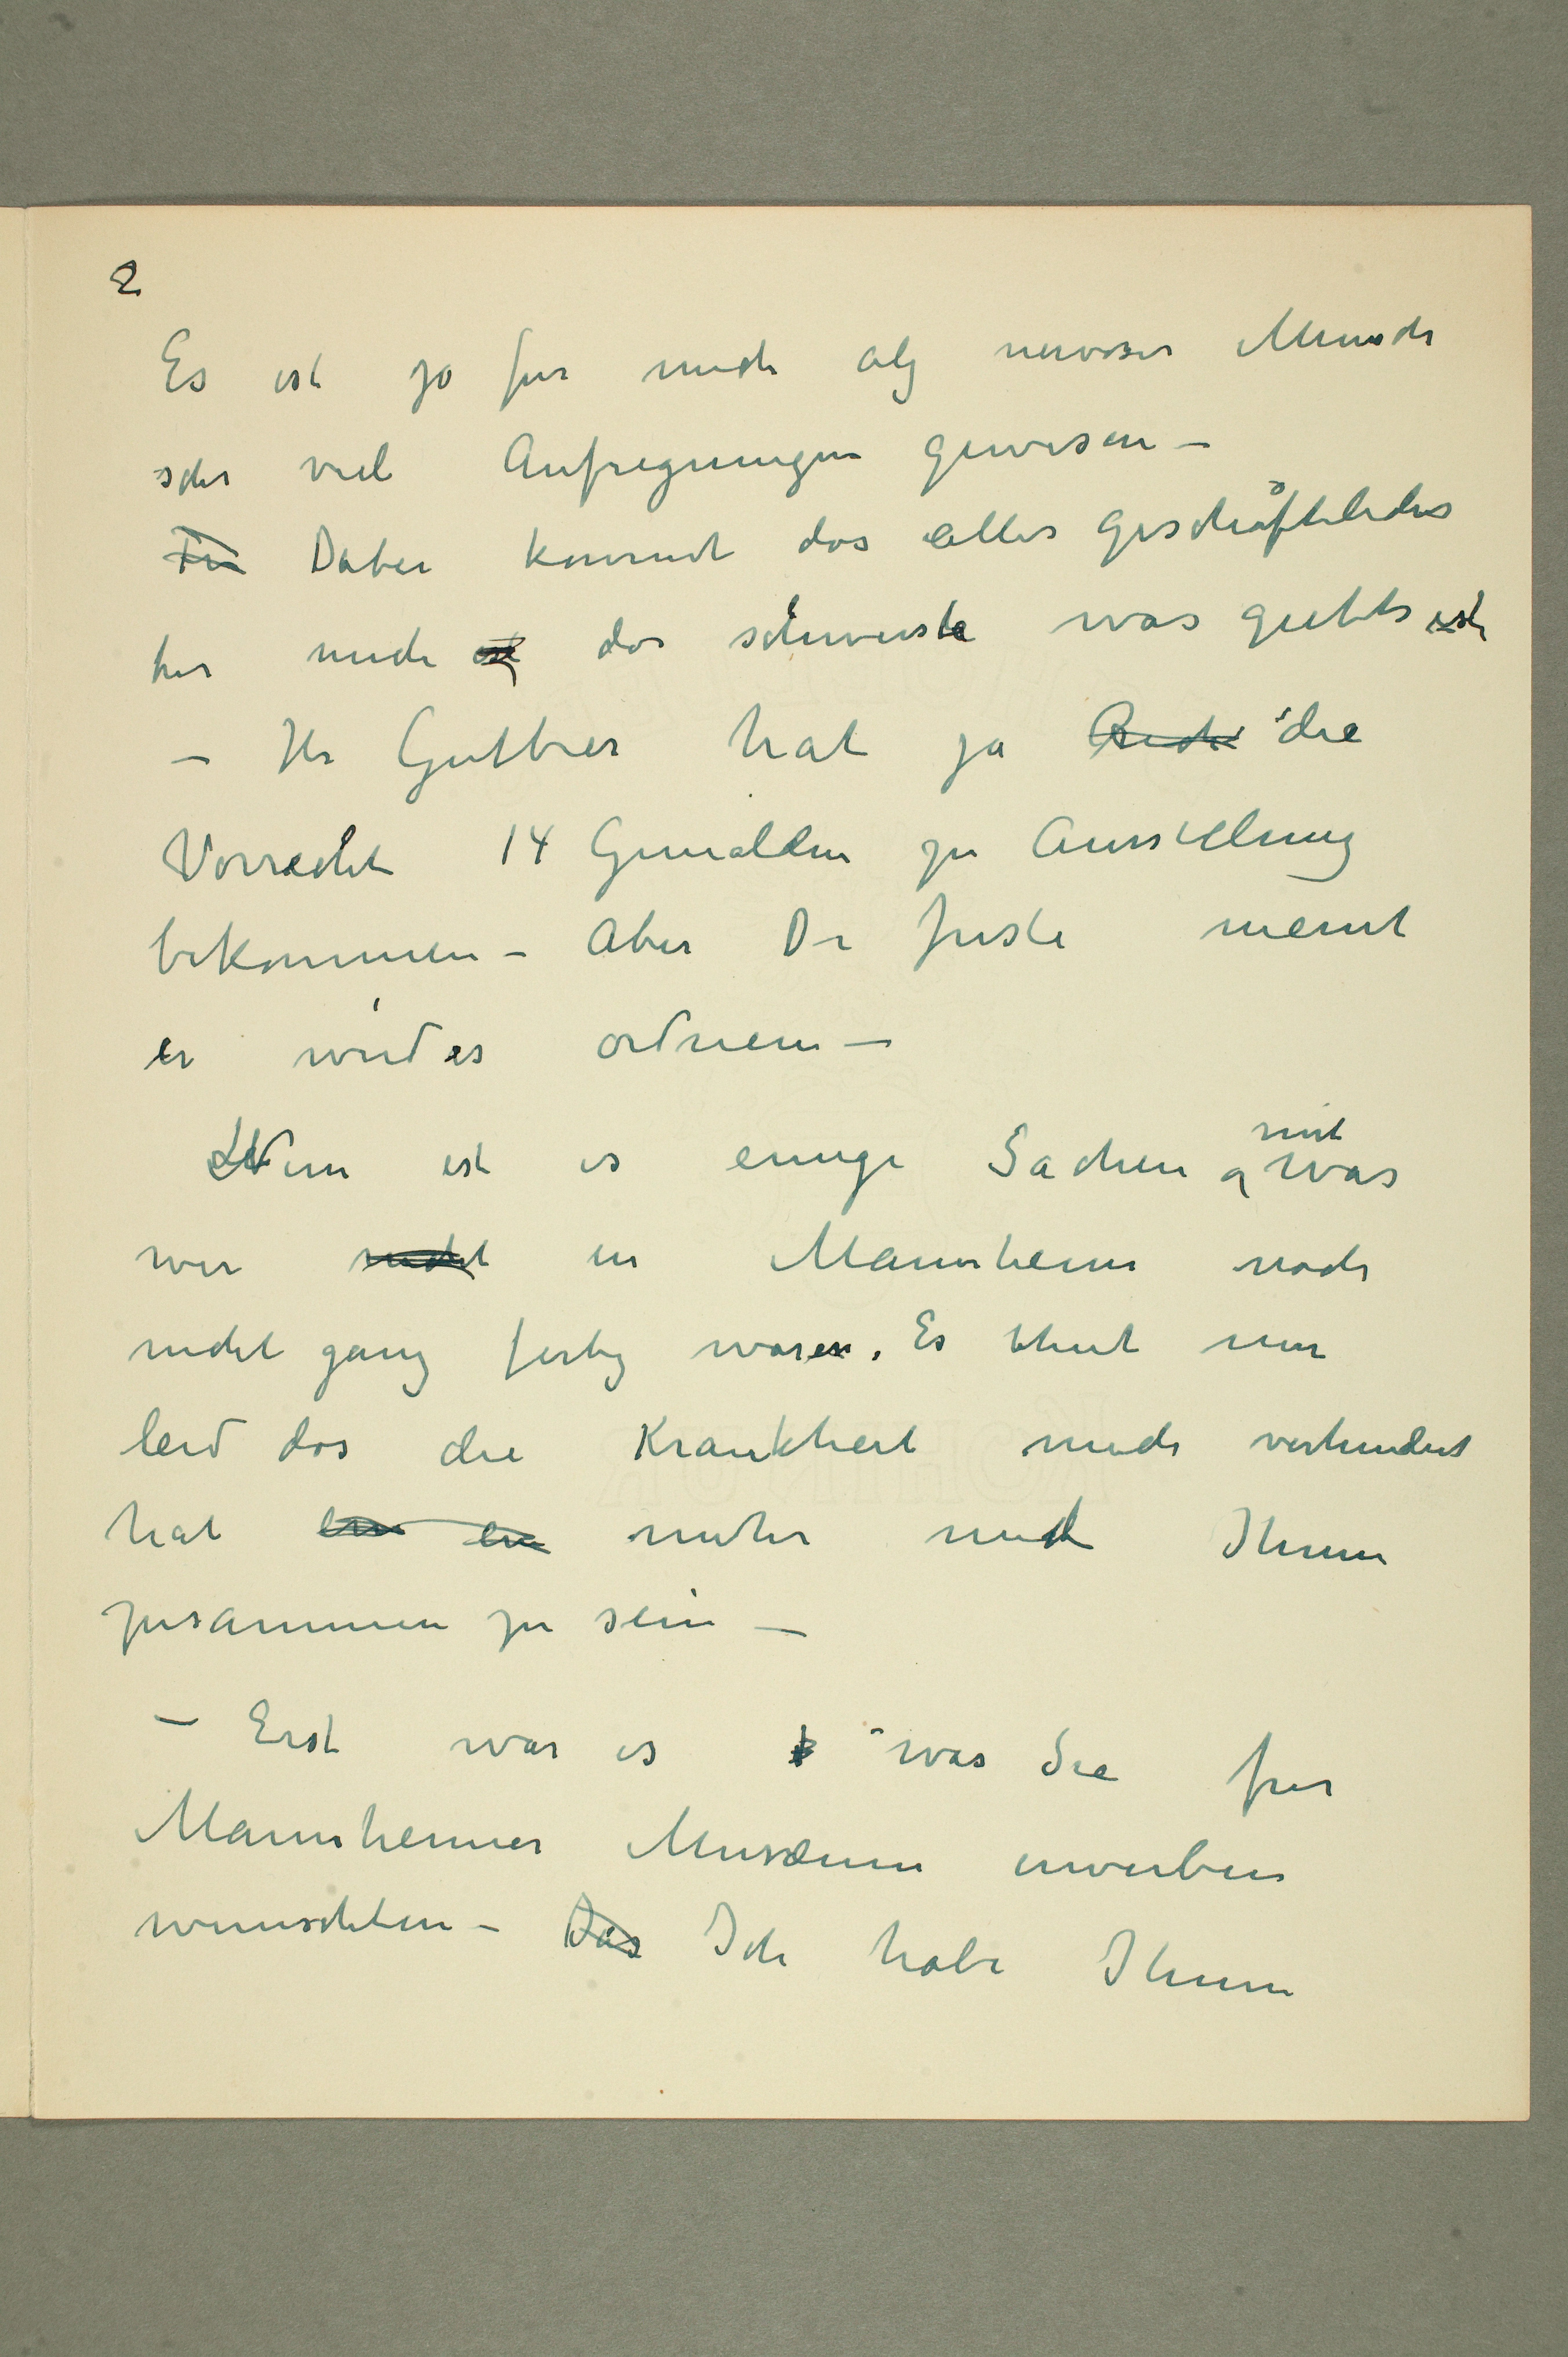 2
Es ist jo fur mich alz nervoser Mensch
sehr viel Aufregungen gewesen –
Fu Dabei kommt das alles geschäftliches
fur mich ist das schwerste was giebts ist
– Hr Gutbier hat ja Rech die
Vorrecht 14 Gemälden zu Ausstellung
bekommen – Aber Dr Juste meint
er wird es ordnen –
Nun ist es einige Sachen mit was
wir nicht in Mannheim noch
nicht ganz fertig waren. Es thut mir
leid das die Krankheit mich verhindert
hat em em mehr mit Ihnen
zusammen zu sein –
– Erst war es was Sie fur
Mannheimer Musæum erwerben
wunschten – Das Ich habe Ihnen